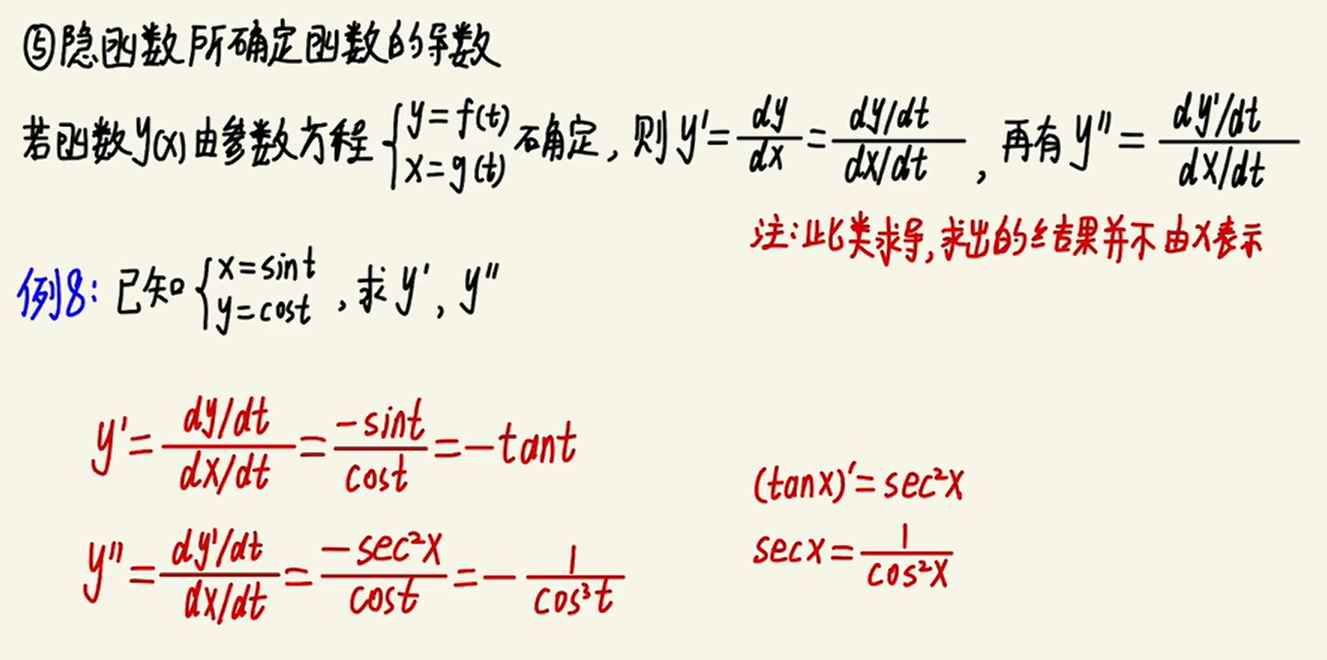 ⑤隐函数所确定函数的导数
若函数y(x)由参数方程{y=f(t) x=g(t)确定, 则y'=dy/dx=(dy/dt)/(dx/dt), 再有y''=(dy'/dt)/(dx/dt)
注:此类求导,求出的结果并不由x表示
例8: 已知{x=sint y=cost, 求y', y''
y'=(dy/dt)/(dx/dt)=(-sint)/(cost)=-tant
(tanx)'=sec²x
y''=(dy'/dt)/(dx/dt)=(-sec²x)/(cost)=-1/(cos³t)
secx=1/(cos²x)